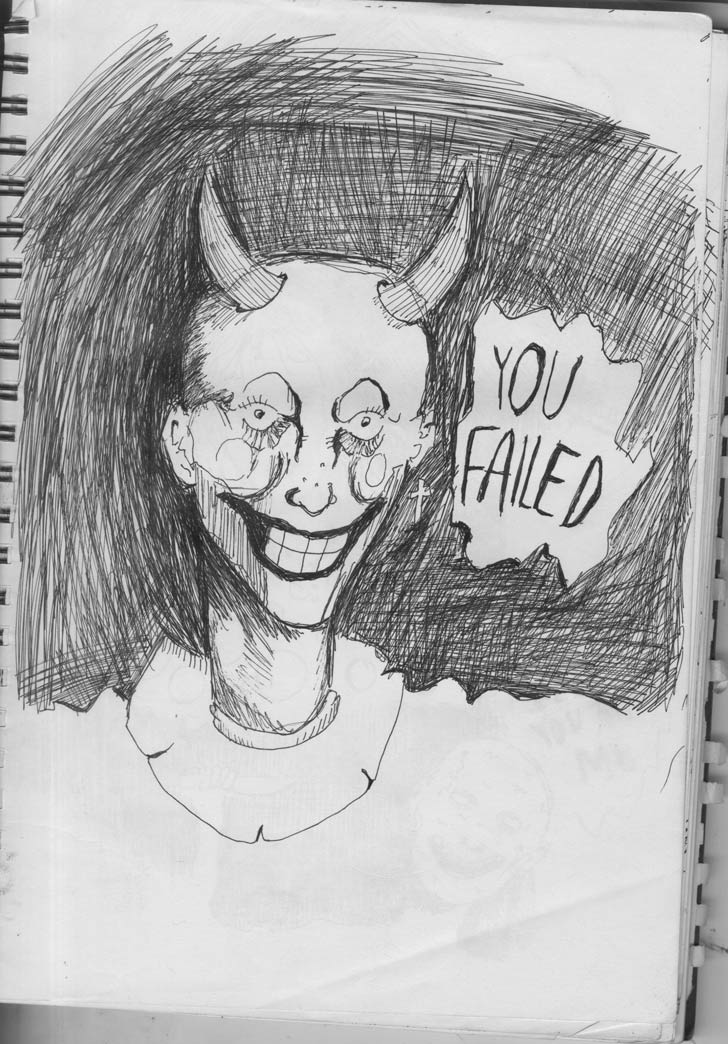 YOU
FAILED